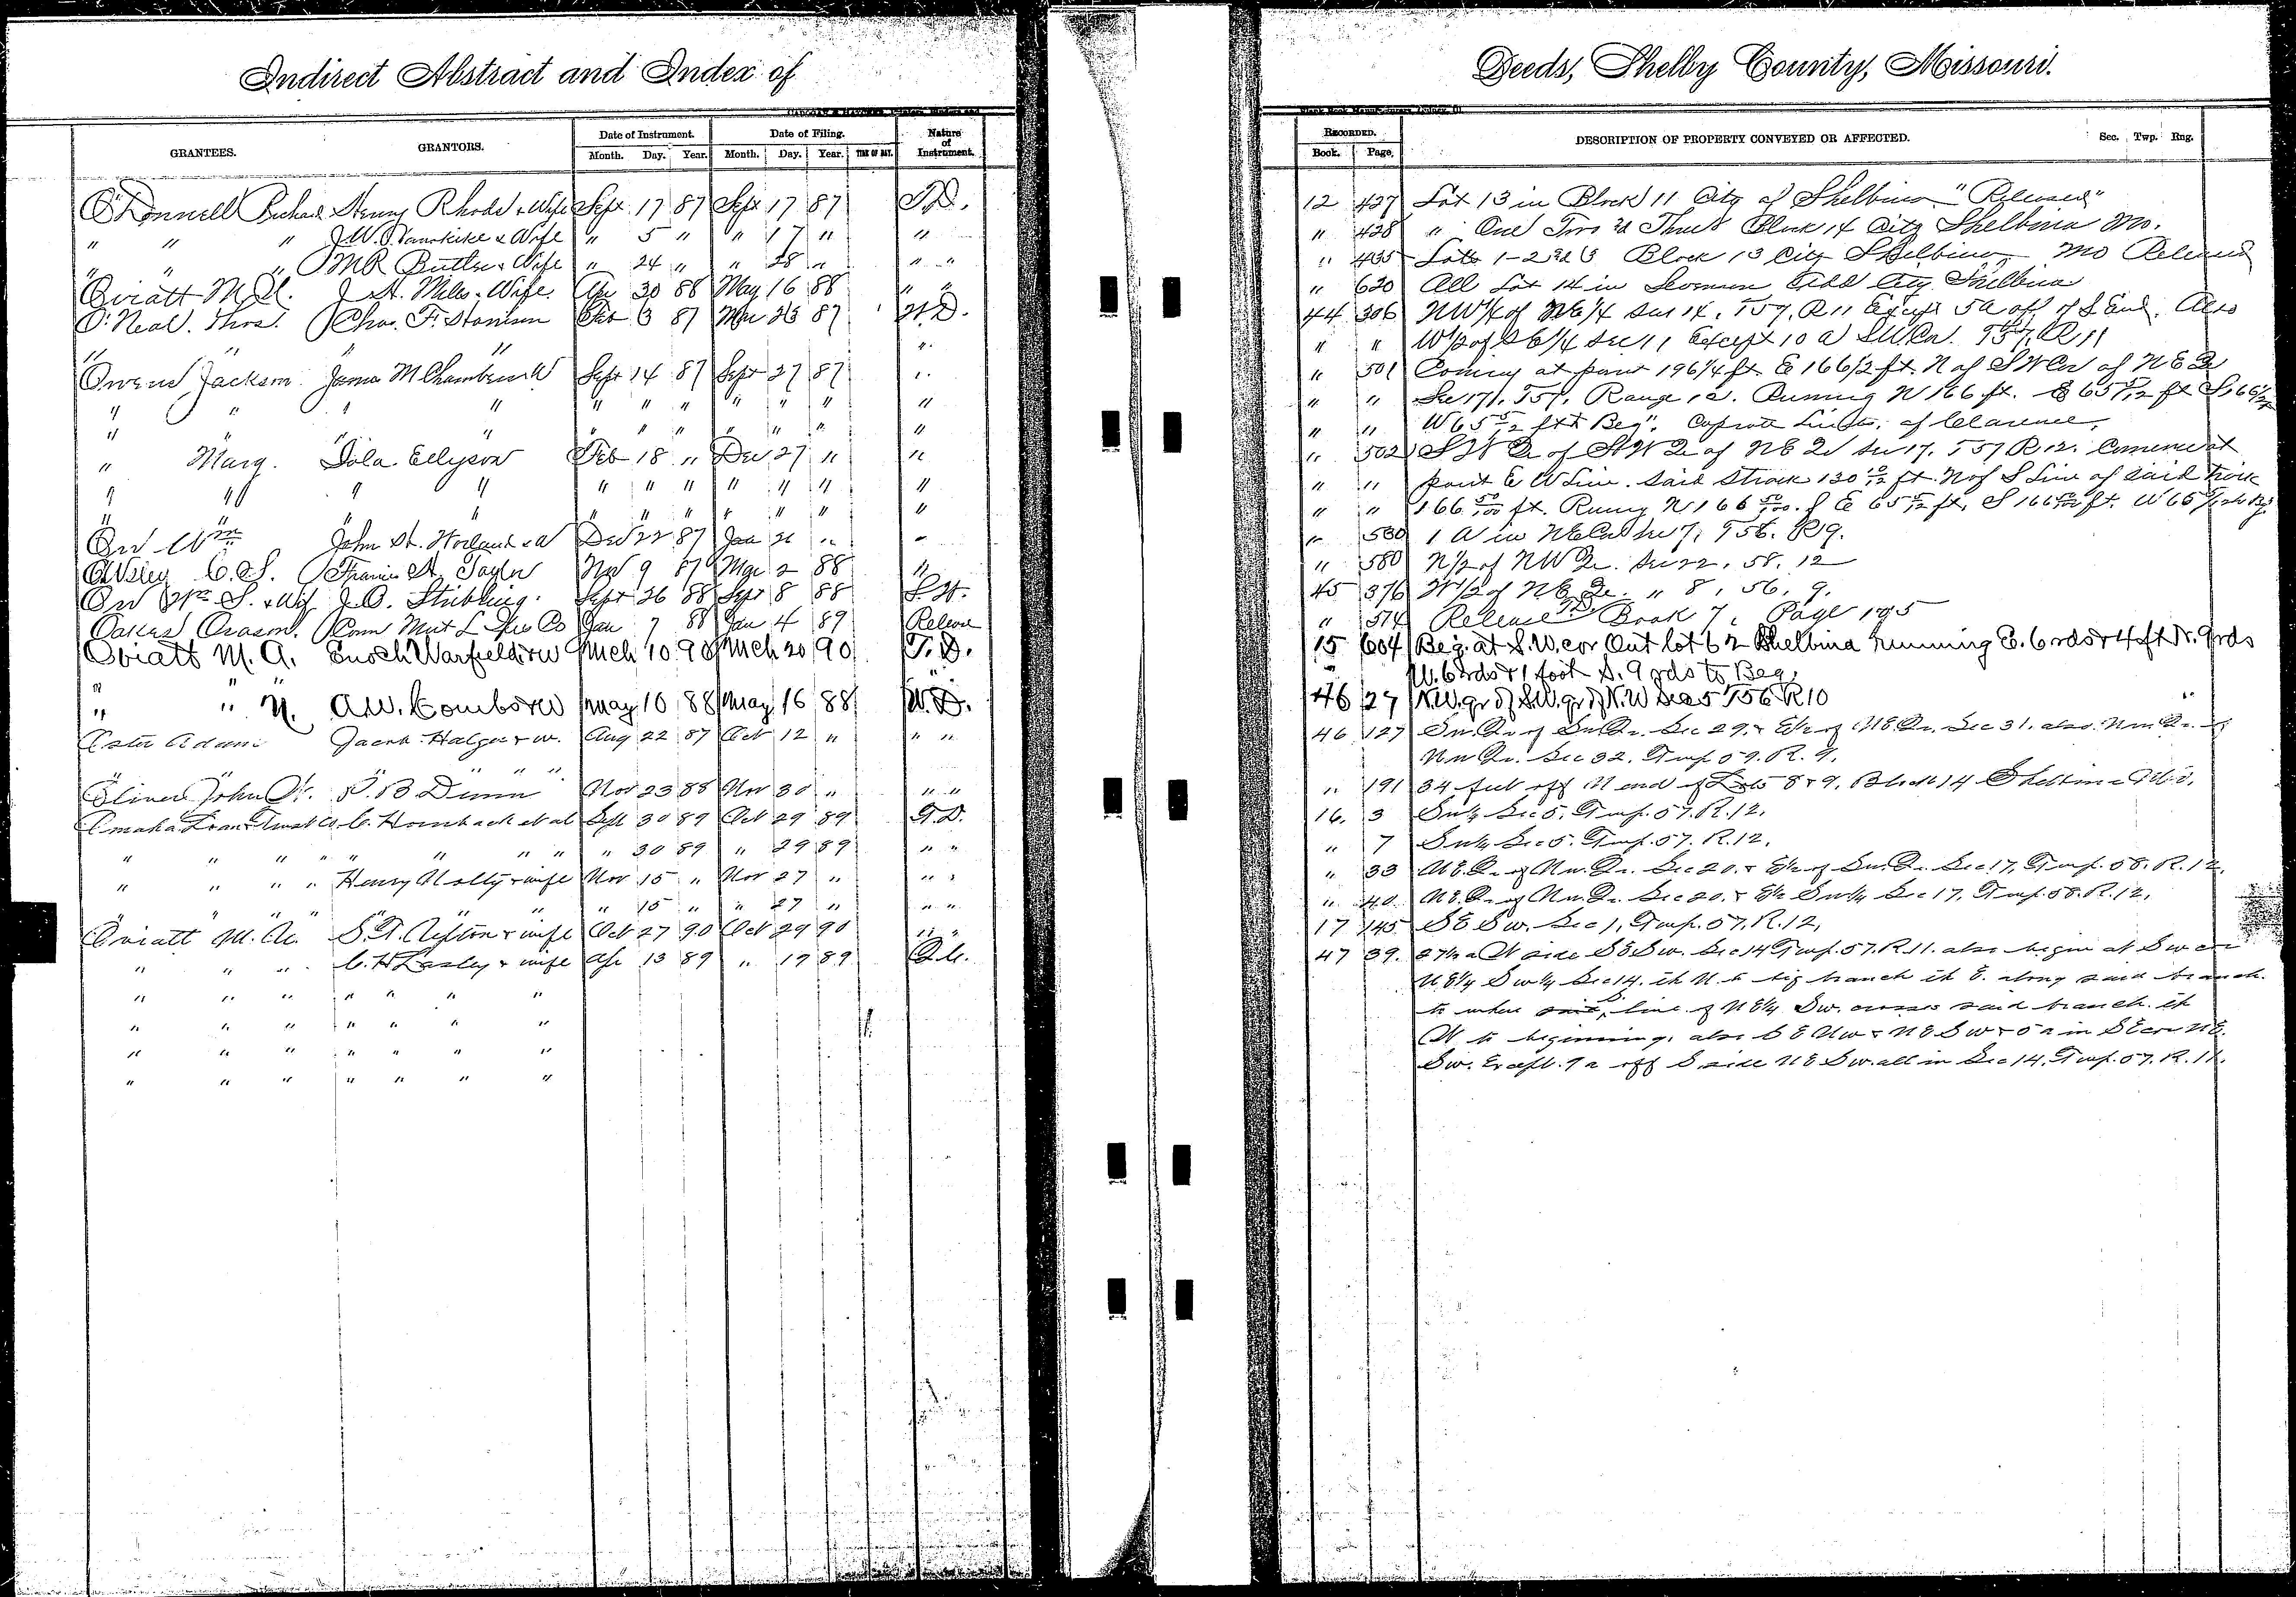 Indirect Abstract and Index of
Deeds, Shelby County, Missouri.
GRANTEES. GRANTORS. Date of Instrument. Date of Filing. Nature of Instrument.
Month. Day. Year. Month. Day. Year. TIME OF DAY.
RECORDED. DESCRIPTION OF PROPERTY CONVEYED OR AFFECTED. Sec. Twp. Rng.
Book. Page.
O'Donnell Richard Henry Rhods & Wife Sept 17 87 Sept 17 87 T.D. 12 427 Lot 13 in Block 11 City of Shelbina "Released"
" " " J.W. & Wife " 5 " " 17 " " " 428 " One Two & Three Block 14 City Shelbina Mo.
" " " M R Butler & Wife " 24 " " 28 " " " " 435 Lots 1-2 & 3 Block 13 City Shelbina Mo Released
Oviatt M. A. J. H. Miles & Wife. Apr 30 88 May 16 88 " " " 620 All Lot 14 in Add City Shelbina
O'Neal. Thos. Chas. F. Feb 3 87 Mar 23 87 W.D. 44 306 NW 1/4 of NE 1/4 Sec 14, T57, R11 Except 5a off of S End. Also
" " " " " " W 1/2 of SE 1/4 Sec 11 Except 10 a SW Cor. T57, R11
Owens Jackson James M Chamber & W Sept 14 87 Sept 27 87 " " 501 Coming at point 196 1/4 ft. E 166 1/2 ft. N of SW Cor of NE Q
" " " " " " " " " " " " " Sec 17, T57, Range 12. Running N 166 ft. E 65 5/12 ft S 166 1/2
" " " " " " " " " " " W 65 5/12 ft to Beg". of Clarence,
" Marg. Iola Ellyson Feb 18 " Dec 27 " " " 502 SW Q of SW Q of NE Q Sec 17. T57 R12. Commence at
" " " " " " " " " " " " " point E W Line. said 130 10/12 ft. N of S Line of said
" " " " " " " " " " " 166 50/100 ft. Runing N 166 50/100 f E 65 5/12 ft, S 166 50/100 ft. W 65
Orr Wm John H. & W Dec 22 87 Jan 21 " " " 580 1 A in NE Cor Sec 7, T56. R9.
C. S. Francis A. Taylor Nov 9 87 Mar 2 88 " " 580 N 1/2 of NW Qr. Sec 22, 58, 12
Orr Wm S. & Wife J. O. Stribling. Sept 26 88 Sept 8 88 45 376 W 1/2 of NE Qr. " 8, 56, 9.
Oakes Orason. Conn Mut L Ins Co Jan 7 88 Jan 4 89 Release " 514 Release Book 7, Page 195
Oviatt M. A. Enoch Warfield & w Mch 10 90 Mch 20 90 T.D. 15 604 Beg. at S.W. cor Out lot 62 Shelbina running E. 6 rds & 4 ft N. 9 rds
" " " W. 6 rds & 1 foot S. 9 rds to Beg.
" " N. A.W. Combs & w May 10 88 May 16 88 W.D. 46 27 N.W. qr of S.W. qr of N.W Sec 5 T56 R10
Oster Adam Jacob & w. Aug 22 87 Oct 12 " " " 46 127 Sw. Qr. of Sw. Qr. Sec 29, & of NE. Qr. Sec 31, also. Nw. Qr. of
" " " " " Nw Qr. Sec 32, Twp. 59. R. 9.
Oliver John P. B Dunn Nov 23 88 Nov 30 " " " " 191 34 feet off N end of Lots 8 & 9, Block 14 Shelbina Mo.
Omaha Loan & Trust Co C. Hornback et al Sept 30 89 Oct 29 89 T.D. 16. 3 Sw 1/4 Sec 5, Twp. 57. R. 12.
" " " " " " " " " 30 89 " 29 89 " " " 7 Sw 1/4 Sec 5. Twp. 57. R. 12.
" " " " Henry Nolly & wife Nov 15 " Nov 27 " " " " 33 NE. Qr. of Nw. Qr. Sec 20. & of Sw. Qr. Sec 17, Twp. 58. R. 12.
" " " " " " " 15 " " 27 " " " " 40. NE. Qr. of Nw. Qr. Sec 20. & Sw 1/4 Sec 17, Twp. 58. R. 12.
Oviatt M. A. S. T. & wife Oct 27 90 Oct 29 90 " " 17 145 SE Sw. Sec 1, Twp. 57, R. 12,
" " " C. H Lasley & wife Apr 13 89 " 17 89 Q.C. 47 39. 27 1/2 a W side SE Sw. Sec 14 Twp. 57. R. 11. also begin at Sw cor
" " " " " " " NE 1/4 Sw 1/4 Sec 14. th N. to big branch th E. along said branch.
" " " " " " " to where line of NE 1/4 Sw. crosses said branch. th
" " " " " " " W to beginning, also SE Nw & NE Sw & 5 a in SE cor NE.
" " " " " " " Sw. Except. 7 a off S. side NE Sw. all in Sec 14, Twp. 57. R. 11.